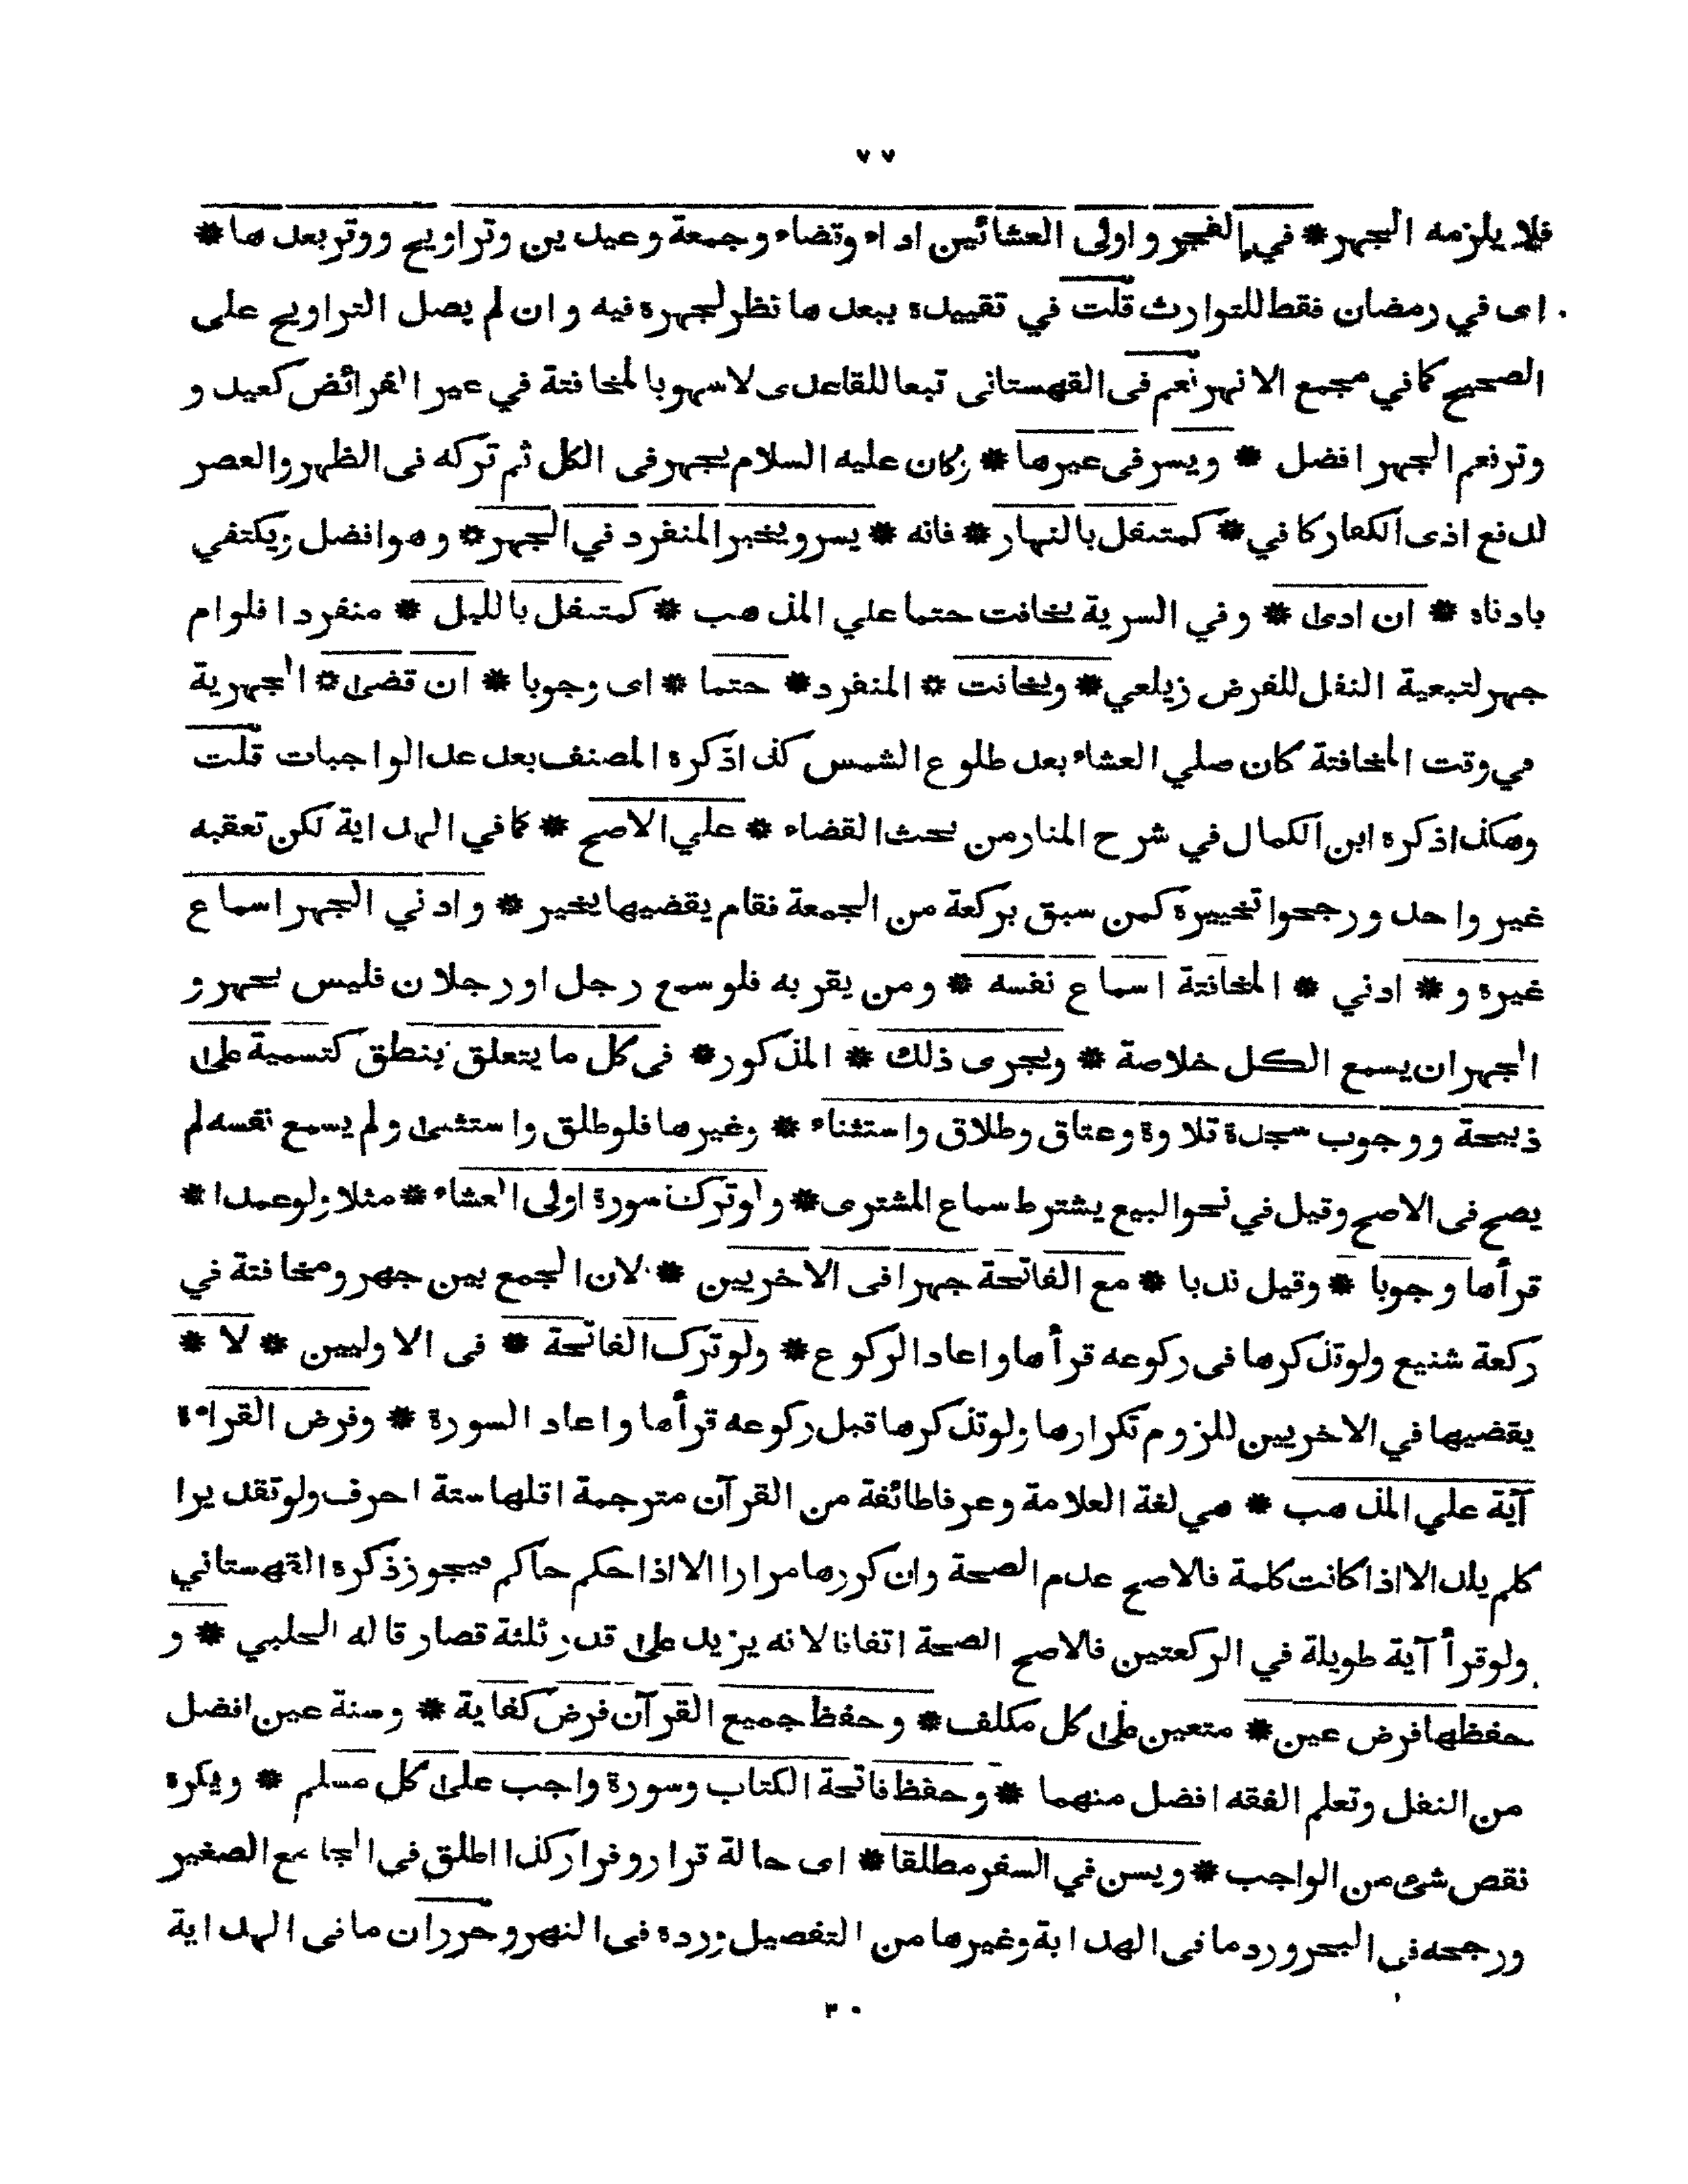 ٧٧
فلا يلزمه الجهر * في الفجر و اولى العشائين اداء وقضاء وجمعة وعيدين وتراويح ووتر بعدها *
اى في رمضان فقط للتوارث قلت في تقييده ببعدها نظر لجهره فيه وان لم يصل التراويح على
الصحيح كما في مجمع الانهر نعم فى القهستانى تبعا للقاعدى لا سهو بالمخافتة في غير الفرائض كعيد و
وتر نعم الجهر افضل * ويسر فى غيرها * وكان عليه السلام يجهر فى الكل ثم تركه فى الظهر والعصر
لدفع اذى الكفار كافي * كمتنفل بالنهار * فانه * يسر ويخير المنفرد في الجهر * وهو افضل ويكتفي
بادناه * ان ادى * وفي السرية يخافت حتما علي المذهب * كمتنفل بالليل * منفردا فلو ام
جهر لتبعية النفل للفرض زيلعي * ويخافت * المنفرد * حتما * اى وجوبا * ان قضى * الجهرية
في وقت المخافتة كان صلي العشاء بعد طلوع الشمس كذا ذكره المصنف بعد عد الواجبات قلت
وهكذا ذكره ابن الكمال في شرح المنار من بحث القضاء * علي الاصح * كما في الهداية لكن تعقبه
غير واحد ورجحوا تخييره كمن سبق بركعة من الجمعة فقام يقضيها يخير * وادني الجهر اسماع
غيره و * ادني * المخافتة اسماع نفسه * ومن يقربه فلو سمع رجل او رجلان فليس بجهر و
الجهر ان يسمع الكل خلاصة * ويجرى ذلك * المذكور * فى كل ما يتعلق بنطق كتسمية على
ذبيحة ووجوب سجدة تلاوة وعتاق وطلاق واستثناء * وغيرها فلو طلق واستثنى ولم يسمع نفسه لم
يصح فى الاصح وقيل في نحو البيع يشترط سماع المشترى * ولو ترك سورة اولى العشاء * مثلا ولو عمدا *
قرأها وجوبا * وقيل ندبا * مع الفاتحة جهرا فى الاخريين * لان الجمع بين جهر ومخافتة في
ركعة شنيع ولو تذكرها فى ركوعه قرأها واعاد الركوع * ولو ترك الفاتحة * فى الاوليين * لا *
يقضيها في الاخريين للزوم تكرارها ولو تذكرها قبل ركوعه قرأها واعاد السورة * وفرض القراءة
آية علي المذهب * هي لغة العلامة وعرفا طائفة من القرآن مترجمة اقلها ستة احرف ولو تقديرا
كلم يلد الا اذا كانت كلمة فالاصح عدم الصحة وان كررها مرارا الا اذا حكم حاكم فيجوز ذكره القهستاني
ولو قرأ آية طويلة في الركعتين فالاصح الصحة اتفاقا لانه يزيد على قدر ثلثة قصار قاله الحلبي * و
حفظها فرض عين * متعين على كل مكلف * وحفظ جميع القرآن فرض كفاية * وسنة عين افضل
من النفل وتعلم الفقه افضل منهما * وحفظ فاتحة الكتاب وسورة واجب على كل مسلم * ويكره
نقص شئ من الواجب * ويسن في السفر مطلقا * اى حالة قرار و فرار كذا اطلق فى الجامع الصغير
ورجحه فى البحر ورد ما فى الهداية وغيرها من التفصيل ورده فى النهر وحرر ان ما فى الهداية